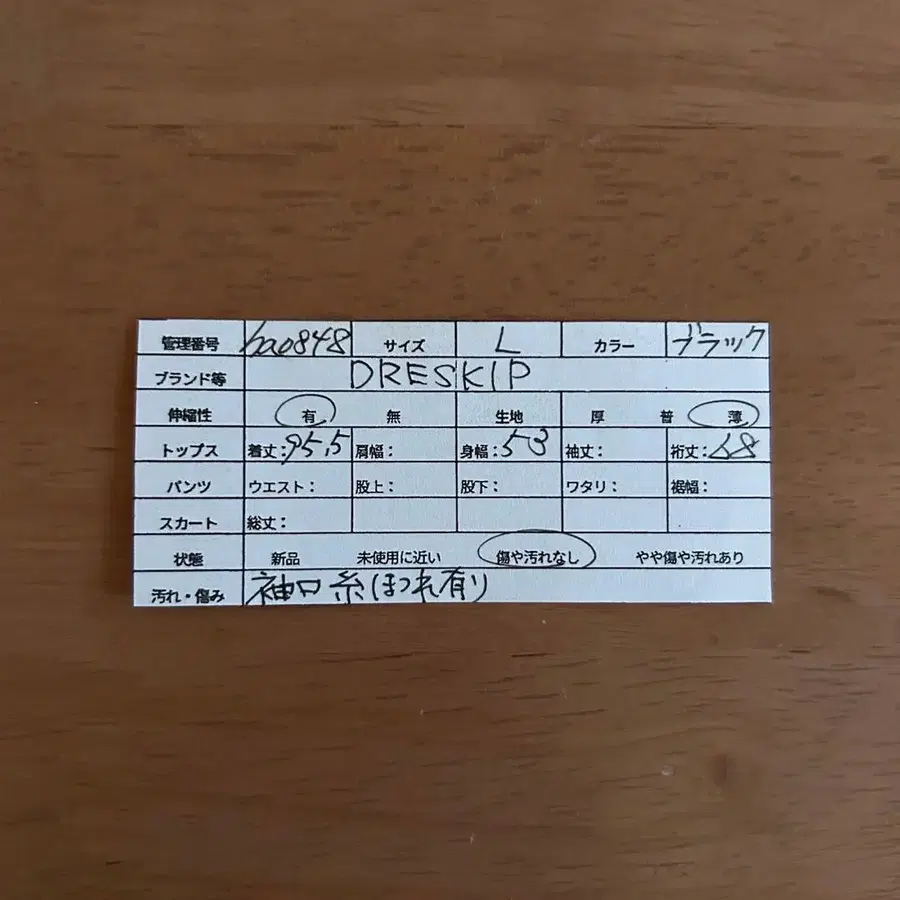 管理番号 hao848 サイズ L カラー ブラック
ブランド等 DRESKIP
伸縮性 有 無 生地 厚 普 薄
トップス 着丈:95.5 肩幅: 身幅:53 袖丈: 裄丈:68
パンツ ウエスト: 股上: 股下: ワタリ: 裾幅:
スカート 総丈:
状態 新品 未使用に近い 傷や汚れなし やや傷や汚れあり
汚れ・傷み 袖口糸ほつれ有り